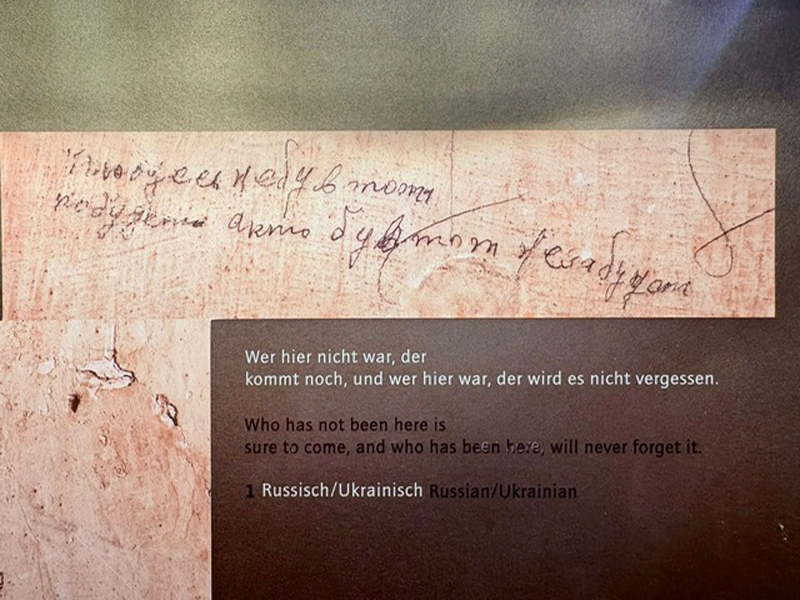 небув
акто був тот
Wer hier nicht war, der
kommt noch, und wer hier war, der wird es nicht vergessen.
Who has not been here is
sure to come, and who has been here, will never forget it.
1 Russisch/Ukrainisch Russian/Ukrainian